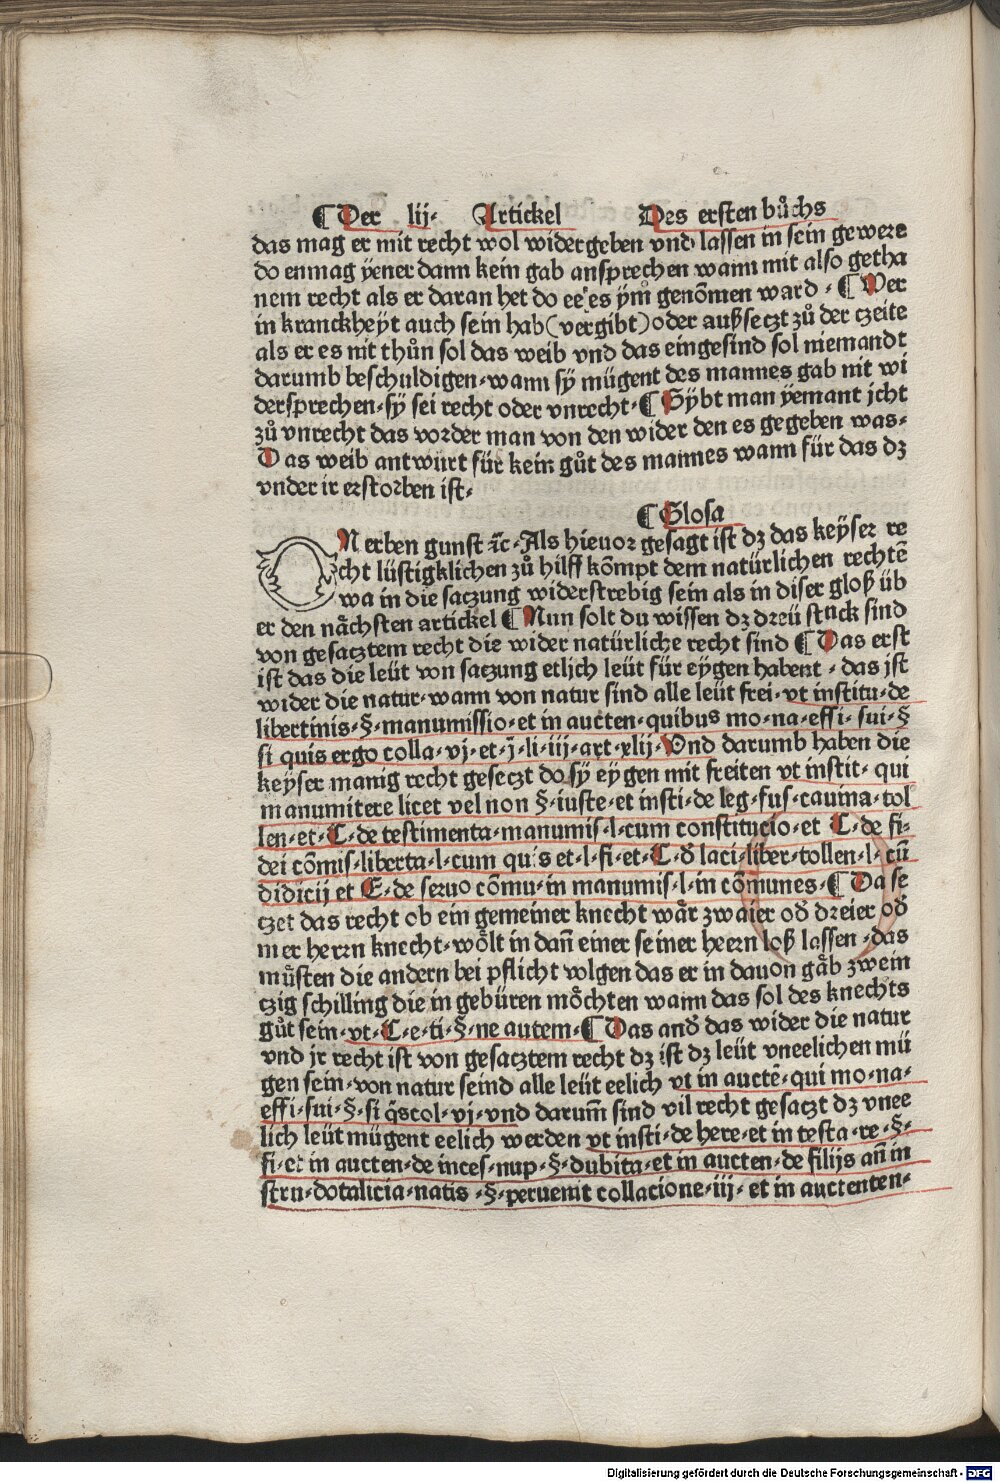 ¶ Der lij. Artickel Des ersten bůchs
das mag er mit recht wol widergeben vnd lassen in sein gewere
do enmag ÿener dann kein gab ansprechen wann mit also getha
nem recht als er daran het do ee es ÿm genõmen ward. ¶ Wer
in kranckheÿt auch sein hab (vergibt) oder außseczt zů der czeite
als er es nit thůn sol das weib vnd das eingesind sol niemandt
darumb beschuldigen. wann sÿ mügent des mannes gab nit wi
dersprechen. sÿ sei recht oder vnrecht. ¶ Gÿbt man ÿemant jcht
zů vnrecht das vorder man von den wider den es gegeben was.
Das weib antwurt für kein gůt des mannes wann für das dz
vnder ir erstorben ist.
¶ Glosa
ONerben gunst ⁊c. Als hieuor gesagt ist dz das keÿser re
cht lüstigklichen zů hilff kõmpt dem natürlichen rechtē
wa in die saczung widerstrebig sein als in diser gloß üb
er den nächsten artickel ¶ Nun solt du wissen dz dreü stuck sind
von gesacztem recht die wider natürliche recht sind ¶ Das erst
ist das die leüt von saczung etlich leüt für eÿgen habent. das ist
wider die natur. wann von natur sind alle leüt frei. vt institu. de
libertinis. §. manumissio. et in aucten. quibus mo. na. effi. sui. §
si quis ergo colla. vj. et. j. li. iij. art. xlij. Vnd darumb haben die
keÿser manig recht geseczt do sÿ eÿgen mit freiten vt instit. qui
manumitere licet vel non §. iuste. et insti. de leg. fus. cauina. tol
len. et. C. de testimenta. manumis. l. cum constitucio. et C. de fi.
dei cõmis. liberta. l. cum quis et. l. fi. et. C. đ laci. liber. tollen. l. cū
didicij et E. de seruo cõmu. in manumis. l. in cõmunes. ¶ Da se
czet das recht ob ein gemeiner knecht wär zwaier ođ dreier ođ
mer herrn knecht. wölt in dañ einer seiner heern loß lassen. das
müsten die andern bei pflicht volgen das er in dauon gäb zwein
czig schilling die in gebüren möchten wann das sol des knechts
gůt sein. vt. C. e. ti. §. ne autem. ¶ Das anđ das wider die natur
vnd jr recht ist von gesacztem recht dz ist dz leüt vneelichen mü
gen sein. von natur seind alle leüt eelich vt in auctē. qui mo. na.
effi. sui. §. si q̃s col. vj. vnd darum̃ sind vil recht gesaczt dz vnee
lich leüt mügent eelich werden vt insti. de here. et in testa. re. §.
fi. et in aucten. de inces. nup. §. dubita. et in aucten. de filijs añ in
strn. dotalicia. natis. §. peruenit collacione. iij. et in auctenten.
Digitalisierung gefördert durch die Deutsche Forschungsgemeinschaft - DFG